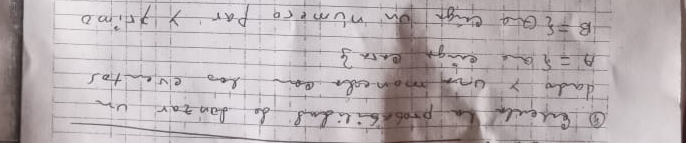 ④ Calcula la probabilidad de lanzar un
dado y una moneda con los eventos
A = { que caiga cara }
B = { Que caiga un número par y primo